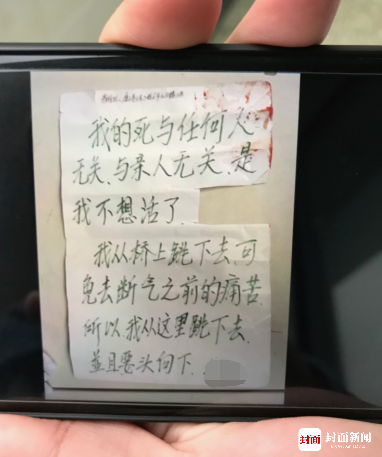 我的死与任何人
无关、与亲人无关、是
我不想活了.
我从桥上跳下去、可
免去断气之前的痛苦.
所以、我从这里跳下去、
並且要头向下.
封面 封面新闻